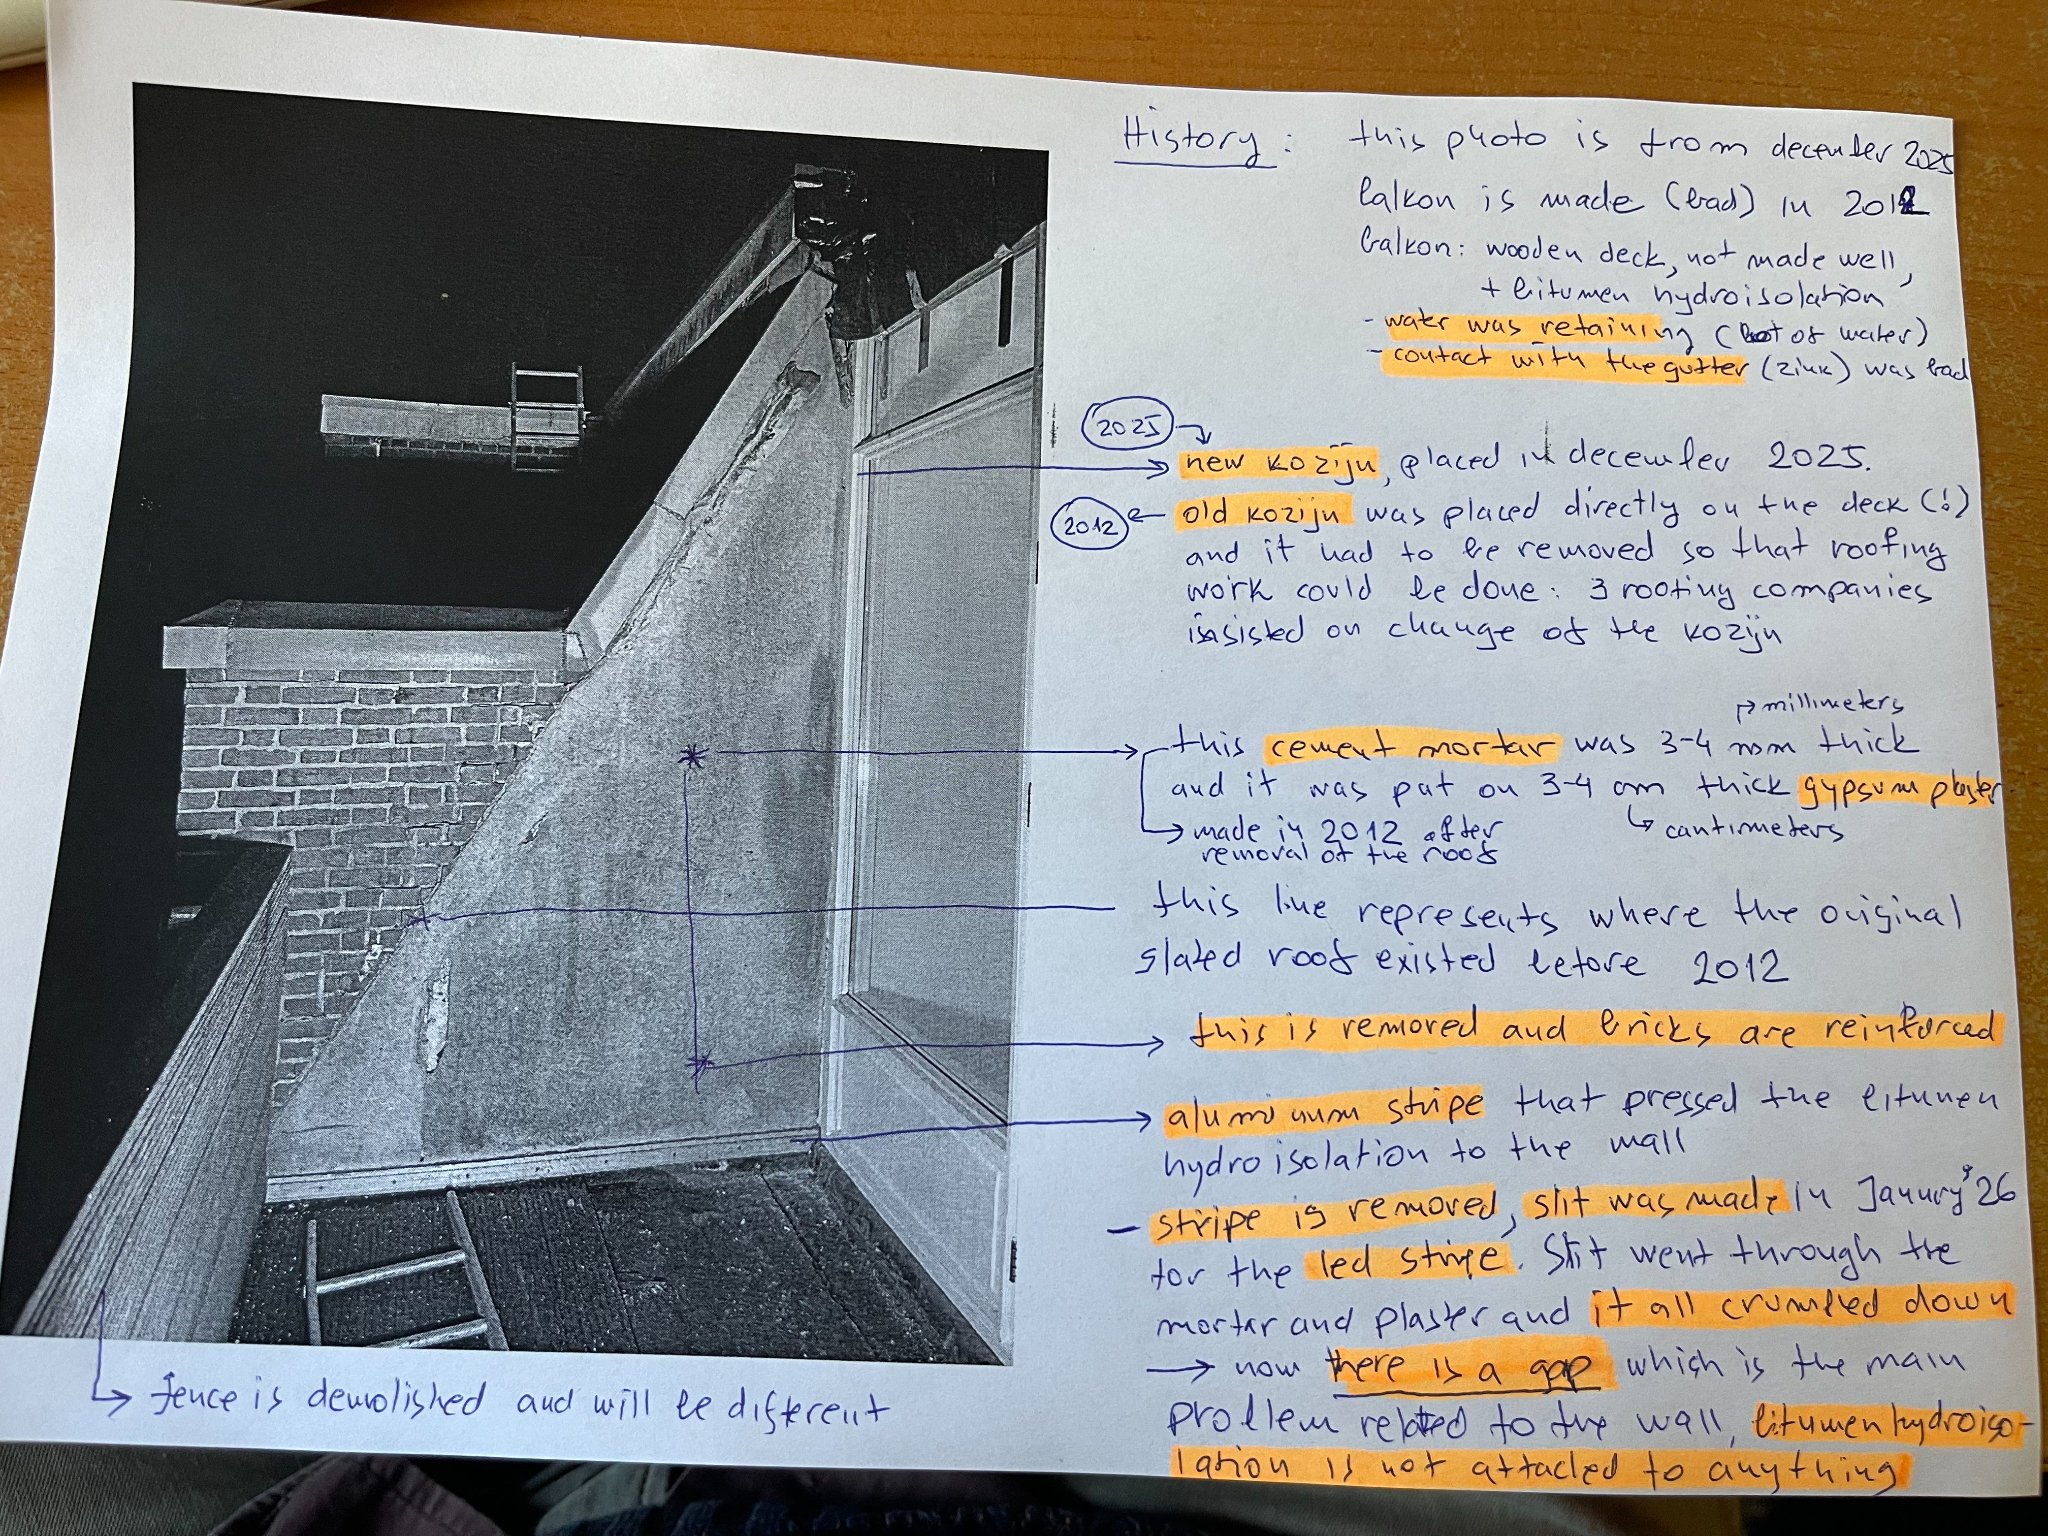 History: this photo is from december 2025
balkon is made (bad) in 2012
balkon: wooden deck, not made well,
+ bitumen hydroisolation
- water was retaining (lot of water)
- contact with the gutter (zink) was bad
2025
new kozijn, placed in december 2025.
2012
old kozijn was placed directly on the deck (!)
and it had to be removed so that roofing
work could be done: 3 roofing companies
insisted on change of the kozijn
millimeters
this cement mortar was 3-4 mm thick
and it was put on 3-4 cm thick gypsum plaster
made in 2012 after
removal of the roof
cantimeters
this line represents where the original
slated roof existed before 2012
this is removed and bricks are reinforced
aluminum stripe that pressed the bitumen
hydroisolation to the wall
- stripe is removed, slit was made in January '26
for the led stripe. Slit went through the
mortar and plaster and it all crumbled down
→ now there is a gap which is the main
problem related to the wall, bitumen hydroiso-
lation is not attached to anything
fence is demolished and will be different